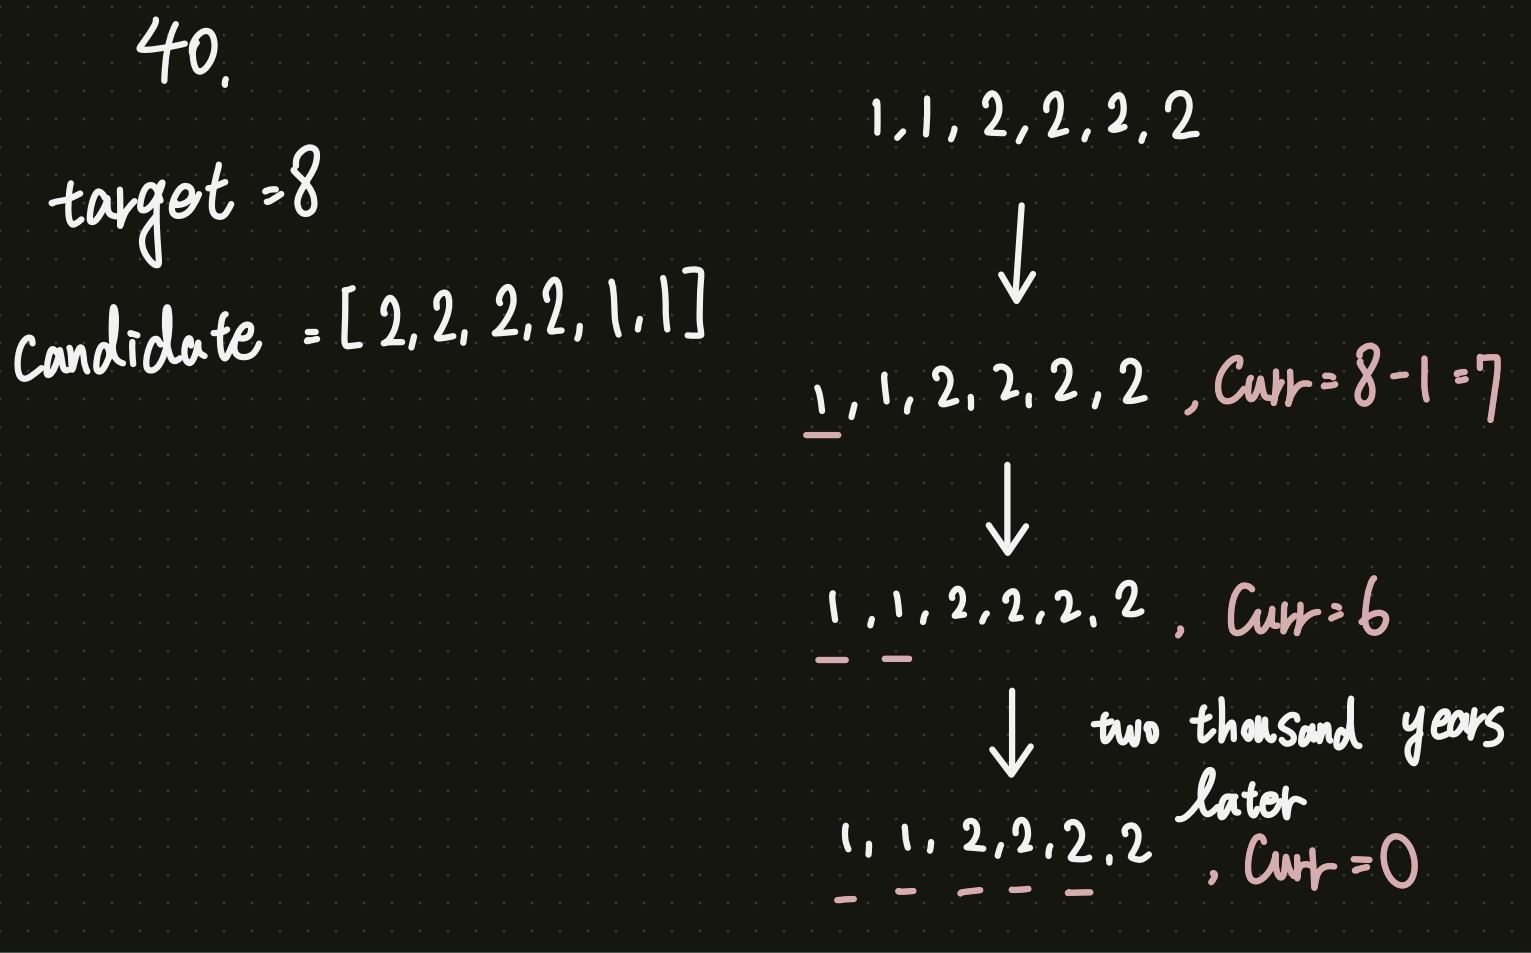 40.
target = 8
candidate = [2, 2, 2, 2, 1, 1]
1, 1, 2, 2, 2, 2
1, 1, 2, 2, 2, 2, Curr = 8 - 1 = 7
1, 1, 2, 2, 2, 2, Curr = 6
two thousand years
later
1, 1, 2, 2, 2, 2, Curr = 0